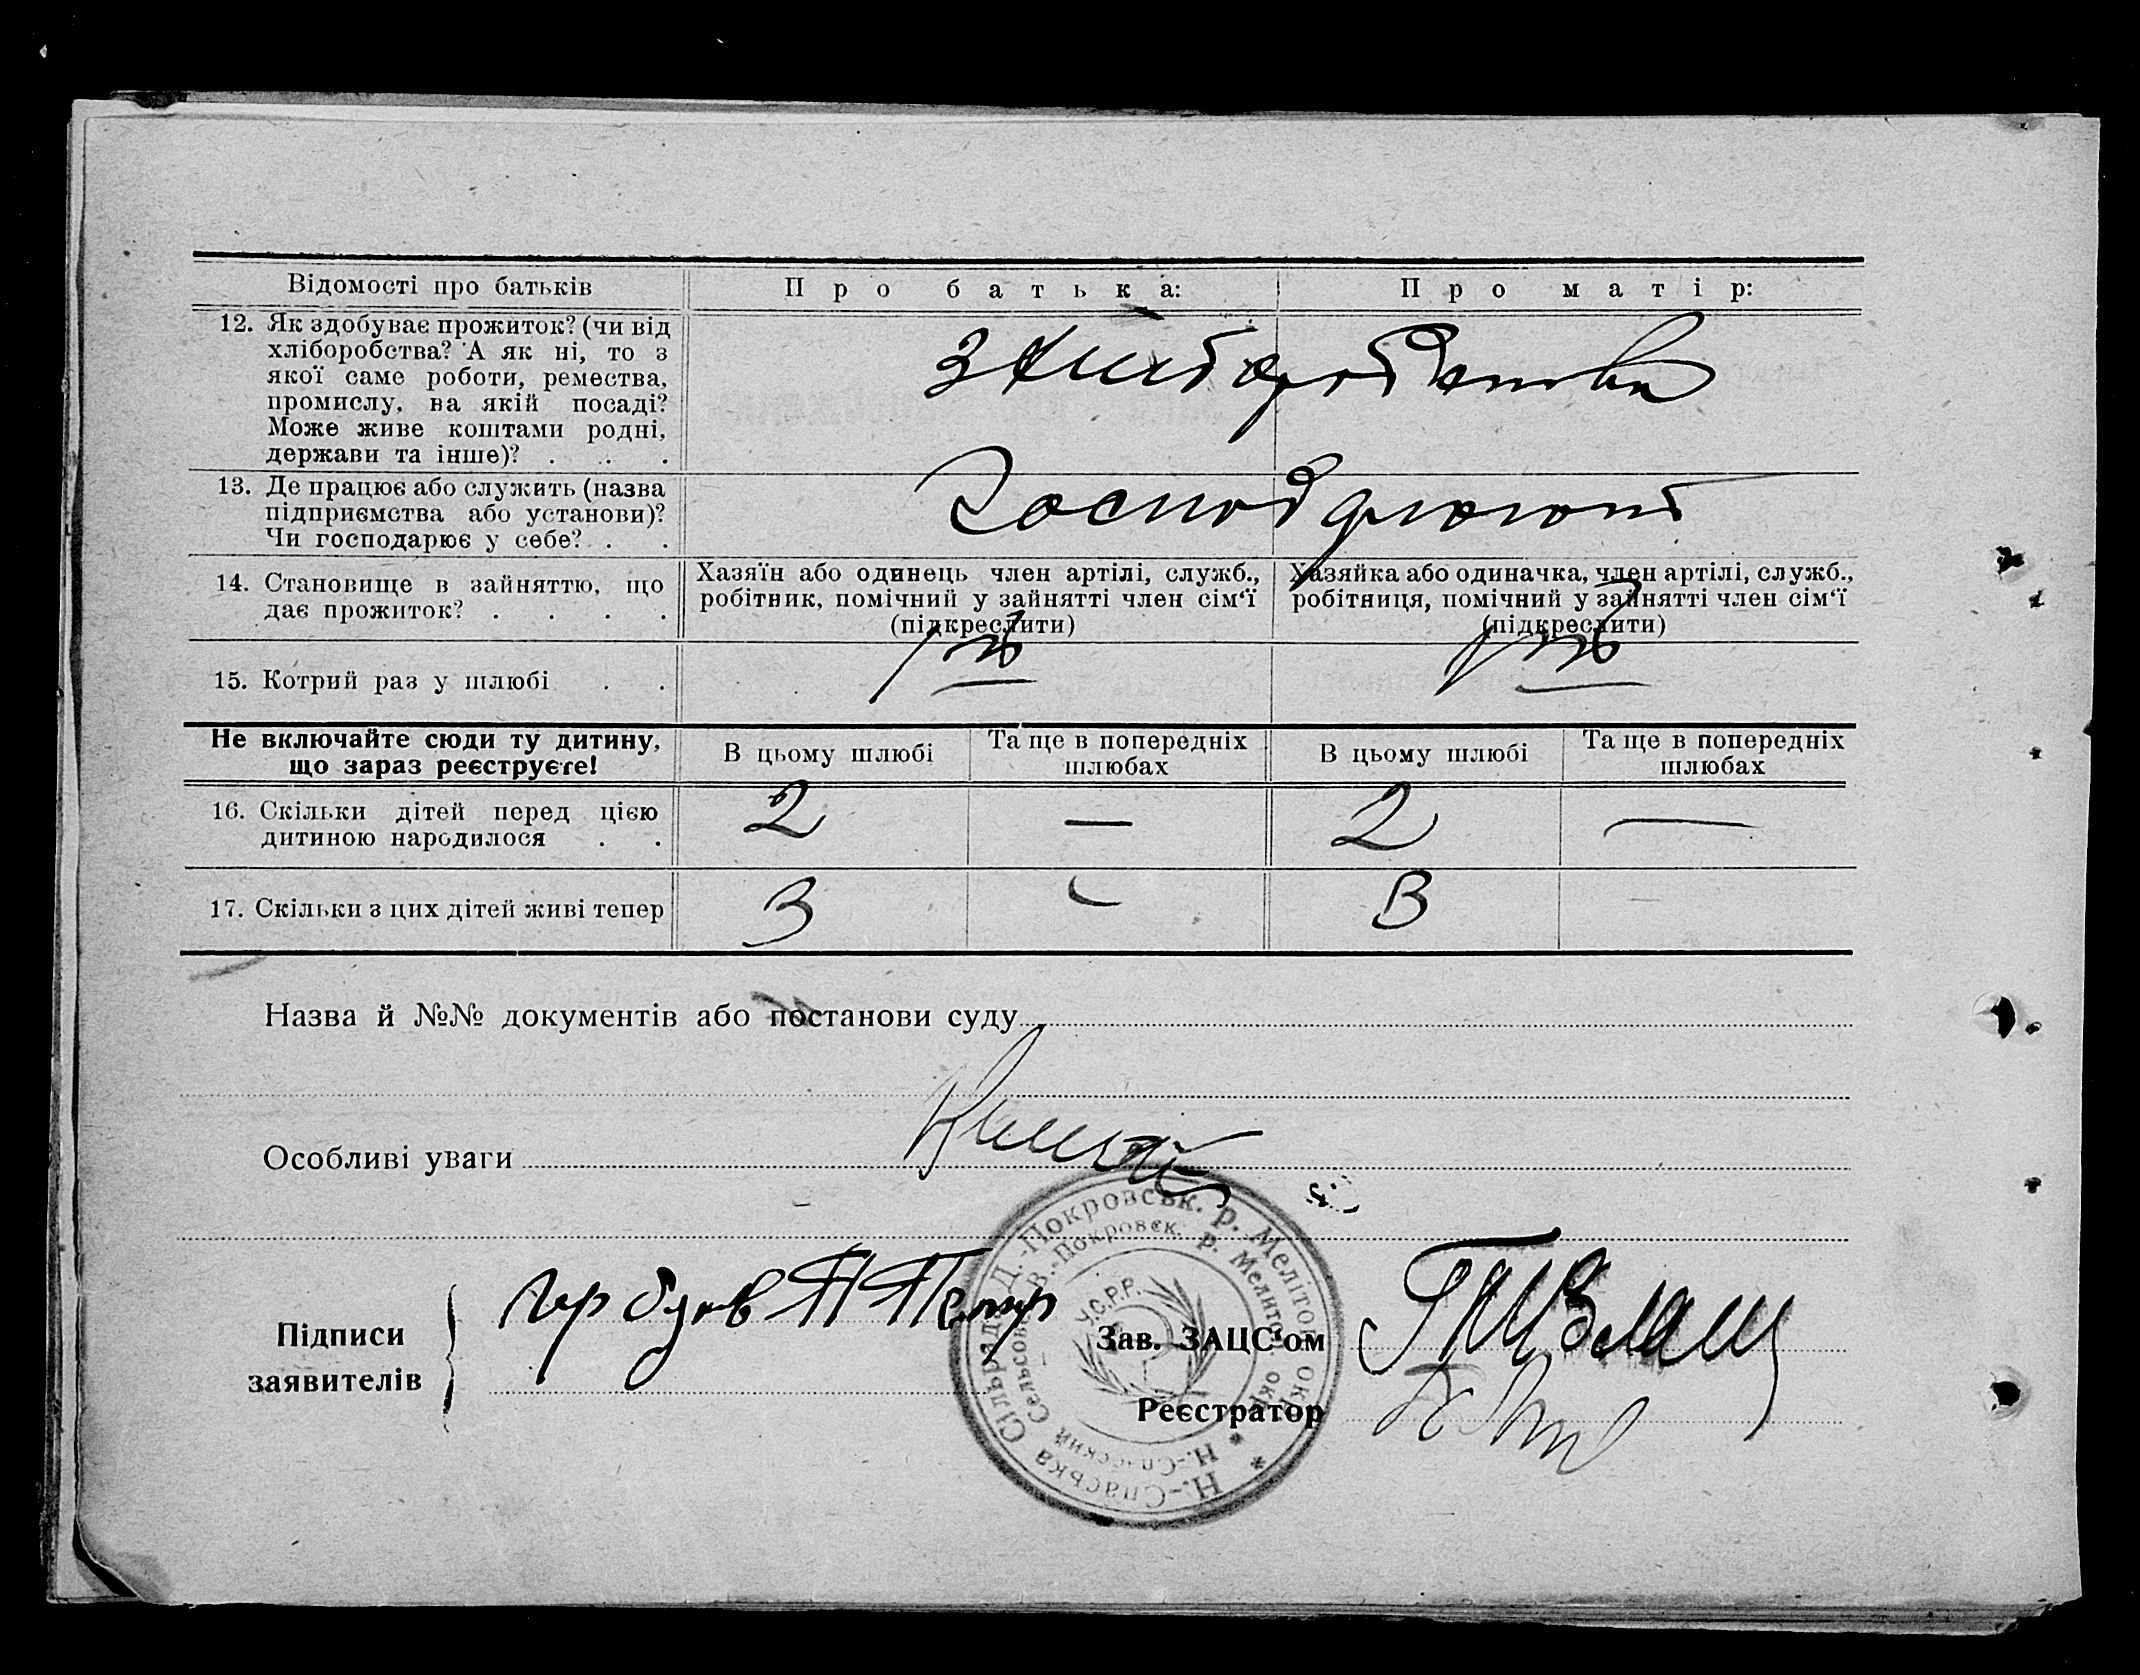 Відомості про батьків
Про батька:
Про матір:
12. Як здобуває прожиток? (чи від
хліборобства? А як ні, то з
якої саме роботи, ремества,
промислу, на якій посаді?
Може живе коштами родні,
держави та інше)? . . .
з хліборобства
13. Де працює або служить (назва
підприємства або установи)?
Чи господарює у себе? . .
Господарюють
14. Становище в зайняттю, що
дає прожиток? . . . .
Хазяїн або одинець член артілі, служб.,
робітник, помічний у зайнятті член сім'ї
(підкреслити)
Хазяйка або одиначка, член артілі, служб.,
робітниця, помічний у зайнятті член сім'ї
(підкреслити)
15. Котрий раз у шлюбі . .
Не включайте сюди ту дитину,
що зараз реєструєте!
В цьому шлюбі
Та ще в попередніх
шлюбах
В цьому шлюбі
Та ще в попередніх
шлюбах
16. Скільки дітей перед цією
дитиною народилося . .
2 — 2 —
17. Скільки з цих дітей живі тепер
3 — 3 —
Назва й №№ документів або постанови суду
Особливі уваги
Немає
Підписи
заявителів
Горбулов
Зав. ЗАЦС'ом
Реєстратор
Н.-Спаська Сільрада Д.-Покровськ. р. Мелітоп. окр. *
Н.-Спасский Сельсовет В.-Покровск. р. Мелитоп. окр. *
У.С.Р.Р.